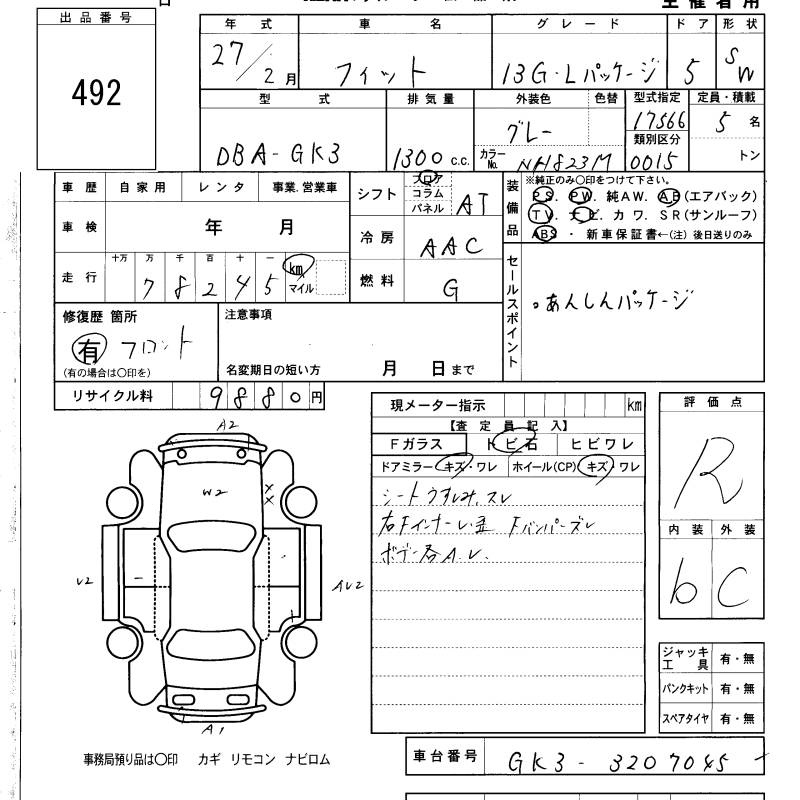 出品番号
492
年式 車名 グレード ドア 形状
27/2月 フィット 13G・Lパッケージ 5 SW
型式 排気量 外装色 色替 型式指定 定員・積載
DBA-GK3 1300 c.c. グレー カラーNo. NH823M 17566 5名
類別区分
0015 トン
車歴 自家用 レンタ 事業.営業車
シフト フロア コラム パネル AT
装備品 ※純正のみ〇印をつけて下さい。
PS. PW. 純AW. AB(エアバック)
TV. ナビ. カワ. SR(サンルーフ)
ABS ・ 新車保証書←(注)後日送りのみ
車検 年 月
冷房 AAC
走行 十万 万 千 百 十 一
78245 km マイル
燃料 G
セールスポイント
。あんしんパッケージ
修復歴 箇所
有 フロント
(有の場合は〇印を)
注意事項
名変期日の短い方 月 日まで
リサイクル料 9880円
現メーター指示 km
【査定員記入】
Fガラス トビ石 ヒビワレ
ドアミラー キズ・ワレ ホイール(CP) キズ・ワレ
シートうすしみ、スレ
右Fインナーレ歪 Fバンパーズレ
ボデー各A.U.
評価点
R
内装 外装
b C
A2
W2
X
X
U2
AU2
A1
ジャッキ工具 有・無
パンクキット 有・無
スペアタイヤ 有・無
事務局預り品は〇印 カギ リモコン ナビロム
車台番号 GK3-3207045